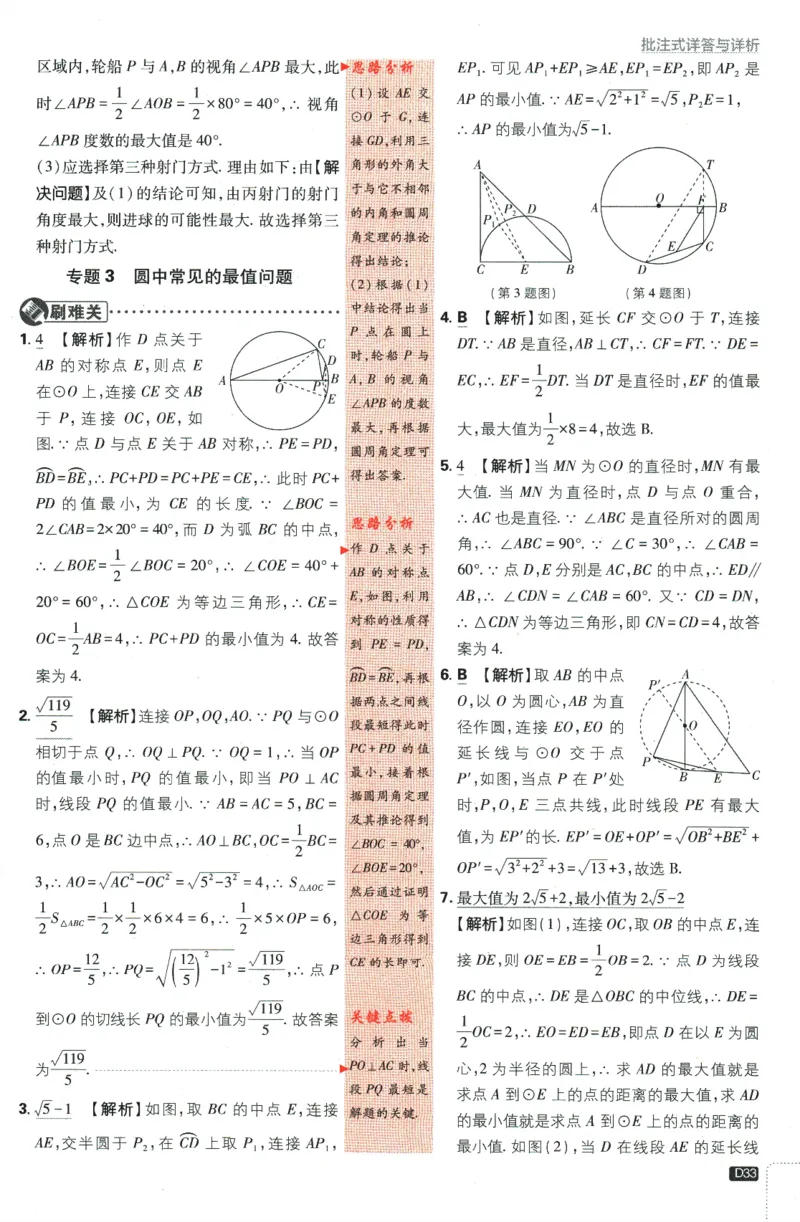 批注式详答与详析
区域内,轮船 P 与 A,B 的视角∠APB 最大,此
时∠APB = 1/2 ∠AOB = 1/2 ×80° = 40°,∴ 视角
∠APB 度数的最大值是 40°.
(3)应选择第三种射门方式. 理由如下:由【解
决问题】及(1)的结论可知,由丙射门的射门
角度最大,则进球的可能性最大. 故选择第三
种射门方式.
专题 3 圆中常见的最值问题
刷难关
1. 4 【解析】作 D 点关于
AB 的对称点 E,则点 E
在⊙O 上,连接 CE 交 AB
于 P, 连接 OC, OE, 如
图.∵ 点 D 与点 E 关于 AB 对称,∴ PE=PD,
⌒BD=⌒BE,∴ PC+PD=PC+PE=CE,∴ 此时 PC+
PD 的值最小,为 CE 的长度. ∵ ∠BOC =
2∠CAB=2×20°=40°,而 D 为弧 BC 的中点,
∴ ∠BOE= 1/2 ∠BOC = 20°,∴ ∠COE = 40°+
20°=60°,∴ △COE 为等边三角形,∴ CE=
OC= 1/2 AB=4,∴ PC+PD 的最小值为 4. 故答
案为 4.
C
D
A
O
P
B
E
2. √119/5 【解析】连接 OP,OQ,AO.∵ PQ 与⊙O
相切于点 Q,∴ OQ⊥PQ. ∵ OQ=1,∴ 当 OP
的值最小时, PQ 的值最小, 即当 PO⊥AC
时,线段 PQ 的值最小. ∵ AB=AC=5,BC=
6,点 O 是 BC 边中点,∴ AO⊥BC,OC= 1/2 BC=
3,∴ AO=√(AC²-OC²)=√(5²-3²)=4,∴ S△AOC=
1/2 S△ABC= 1/2 × 1/2 ×6×4=6,∴ 1/2 ×5×OP=6,
∴ OP= 12/5,∴ PQ=√((12/5)²-1²)= √119/5,∴ 点 P
到⊙O 的切线长 PQ 的最小值为 √119/5. 故答案
为 √119/5.
3. √5-1 【解析】如图,取 BC 的中点 E,连接
AE,交半圆于 P₂,在 ⌒CD 上取 P₁,连接 AP₁,
思路分析
(1)设 AE 交
⊙O 于 G, 连
接 GD,利用三
角形的外角大
于与它不相邻
的内角和圆周
角定理的推论
得出结论;
(2)根据(1)
中结论得出当
P 点在圆上
时,轮船 P 与
A,B 的视角
∠APB 的度数
最大,再根据
圆周角定理可
得出答案.
思路分析
作 D 点关于
AB 的对称点
E,如图,利用
对称的性质得
到 PE = PD,
⌒BD=⌒BE,再根
据两点之间线
段最短得此时
PC+PD 的值
最小,接着根
据圆周角定理
及其推论得到
∠BOC = 40°,
∠BOE=20°,
然后通过证明
△COE 为等
边三角形得到
CE 的长即可.
关键点拨
分析出当
PO⊥AC 时,线
段 PQ 最短是
解题的关键.
EP₁. 可见 AP₁+EP₁≥AE,EP₁=EP₂,即 AP₂ 是
AP 的最小值.∵ AE=√(2²+1²)=√5,P₂E=1,
∴ AP 的最小值为√5-1.
A
P₁
P₂
D
C
E
B
(第 3 题图)
T
O
F
A
B
E
C
D
(第 4 题图)
4. B 【解析】如图, 延长 CF 交⊙O 于 T, 连接
DT.∵ AB 是直径,AB⊥CT,∴ CF=FT.∵ DE=
EC,∴ EF= 1/2 DT. 当 DT 是直径时,EF 的值最
大,最大值为 1/2 ×8=4,故选 B.
5. 4 【解析】当 MN 为⊙O 的直径时,MN 有最
大值. 当 MN 为直径时,点 D 与点 O 重合,
∴ AC 也是直径.∵ ∠ABC 是直径所对的圆周
角,∴ ∠ABC=90°.∵ ∠C=30°,∴ ∠CAB=
60°.∵ 点 D,E 分别是 AC,BC 的中点,∴ ED∥
AB,∴ ∠CDN=∠CAB=60°. 又∵ CD=DN,
∴ △CDN 为等边三角形,即 CN=CD=4,故答
案为 4.
6. B 【解析】取 AB 的中点
O,以 O 为圆心,AB 为直
径作圆,连接 EO,EO 的
延长线与 ⊙O 交于点
P′,如图,当点 P 在 P′处
时,P,O,E 三点共线,此时线段 PE 有最大
值,为 EP′的长. EP′=OE+OP′=√(OB²+BE²)+
OP′=√(3²+2²)+3=√13+3,故选 B.
A
P′
O
P
B
E
C
7. 最大值为 2√5+2,最小值为 2√5-2
【解析】如图(1),连接 OC,取 OB 的中点 E,连
接 DE,则 OE=EB= 1/2 OB=2.∵ 点 D 为线段
BC 的中点,∴ DE 是△OBC 的中位线,∴ DE=
1/2 OC=2,∴ EO=ED=EB,即点 D 在以 E 为圆
心,2 为半径的圆上,∴ 求 AD 的最大值就是
求点 A 到⊙E 上的点的距离的最大值,求 AD
的最小值就是求点 A 到⊙E 上的点的距离的
最小值. 如图(2),当 D 在线段 AE 的延长线
D33